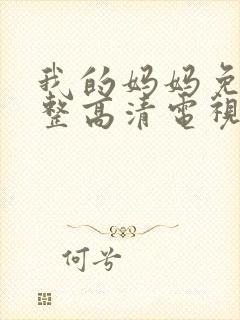 我的妈妈免
整高清電視
何兮